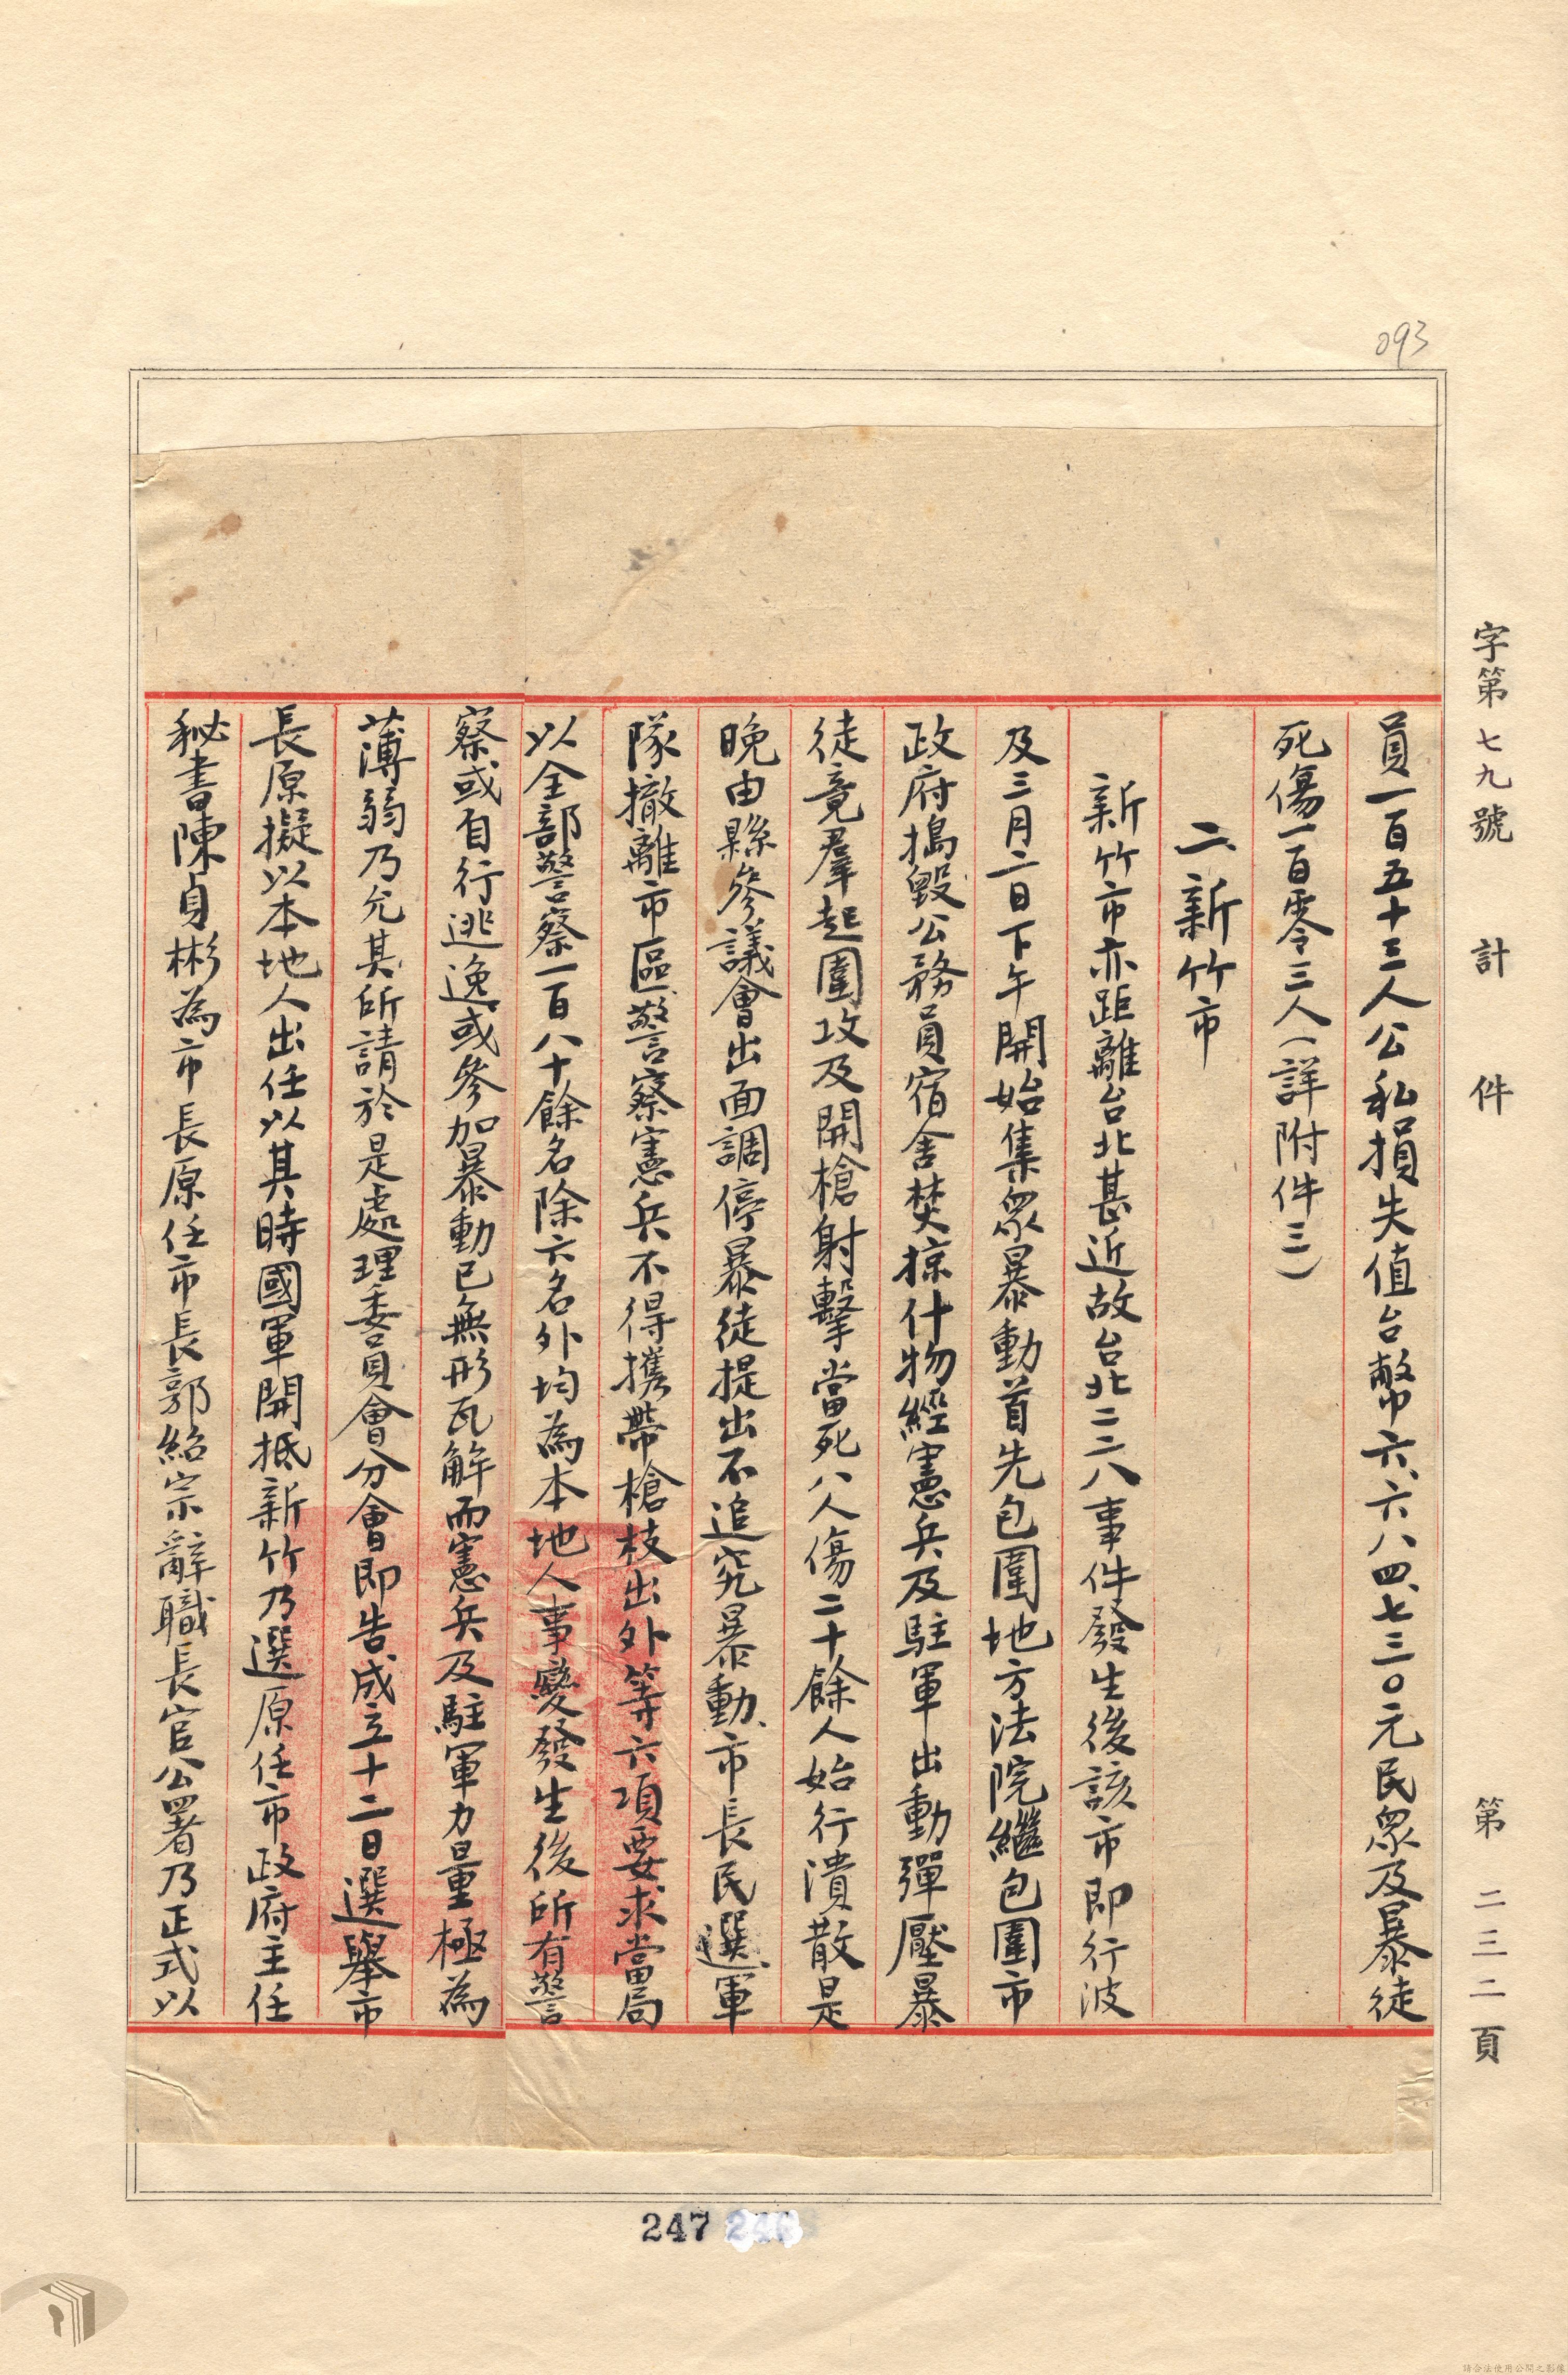 093
字第七九號 計 件 第二三二頁
員一百五十三人公私損失值台幣六、六八四、七三〇元民眾及暴徒
死傷一百零三人（詳附件三）
二、新竹市
新竹市亦距離台北甚近故台北二二八事件發生後該市即行波
及三月二日下午開始集眾暴動首先包圍地方法院繼包圍市
政府搗毀公務員宿舍焚掠什物經憲兵及駐軍出動彈壓暴
徒竟羣起圍攻及開槍射擊當死八人傷二十餘人始行潰散是
晚由縣參議會出面調停暴徒提出不追究暴動、市長民選、軍
隊撤離市區、警察憲兵不得携帶槍枝出外等六項要求當局
以全部警察一百八十餘名除六名外均為本地人事變發生後所有警
察或自行逃逸或參加暴動已無形瓦解而憲兵及駐軍力量極為
薄弱乃允其所請於是處理委員會分會即告成立十二日選舉市
長原擬以本地人出任以其時國軍開抵新竹乃選原任市政府主任
秘書陳貞彬為市長原任市長郭紹宗辭職長官公署乃正式以
247
請合法使用公開之影像